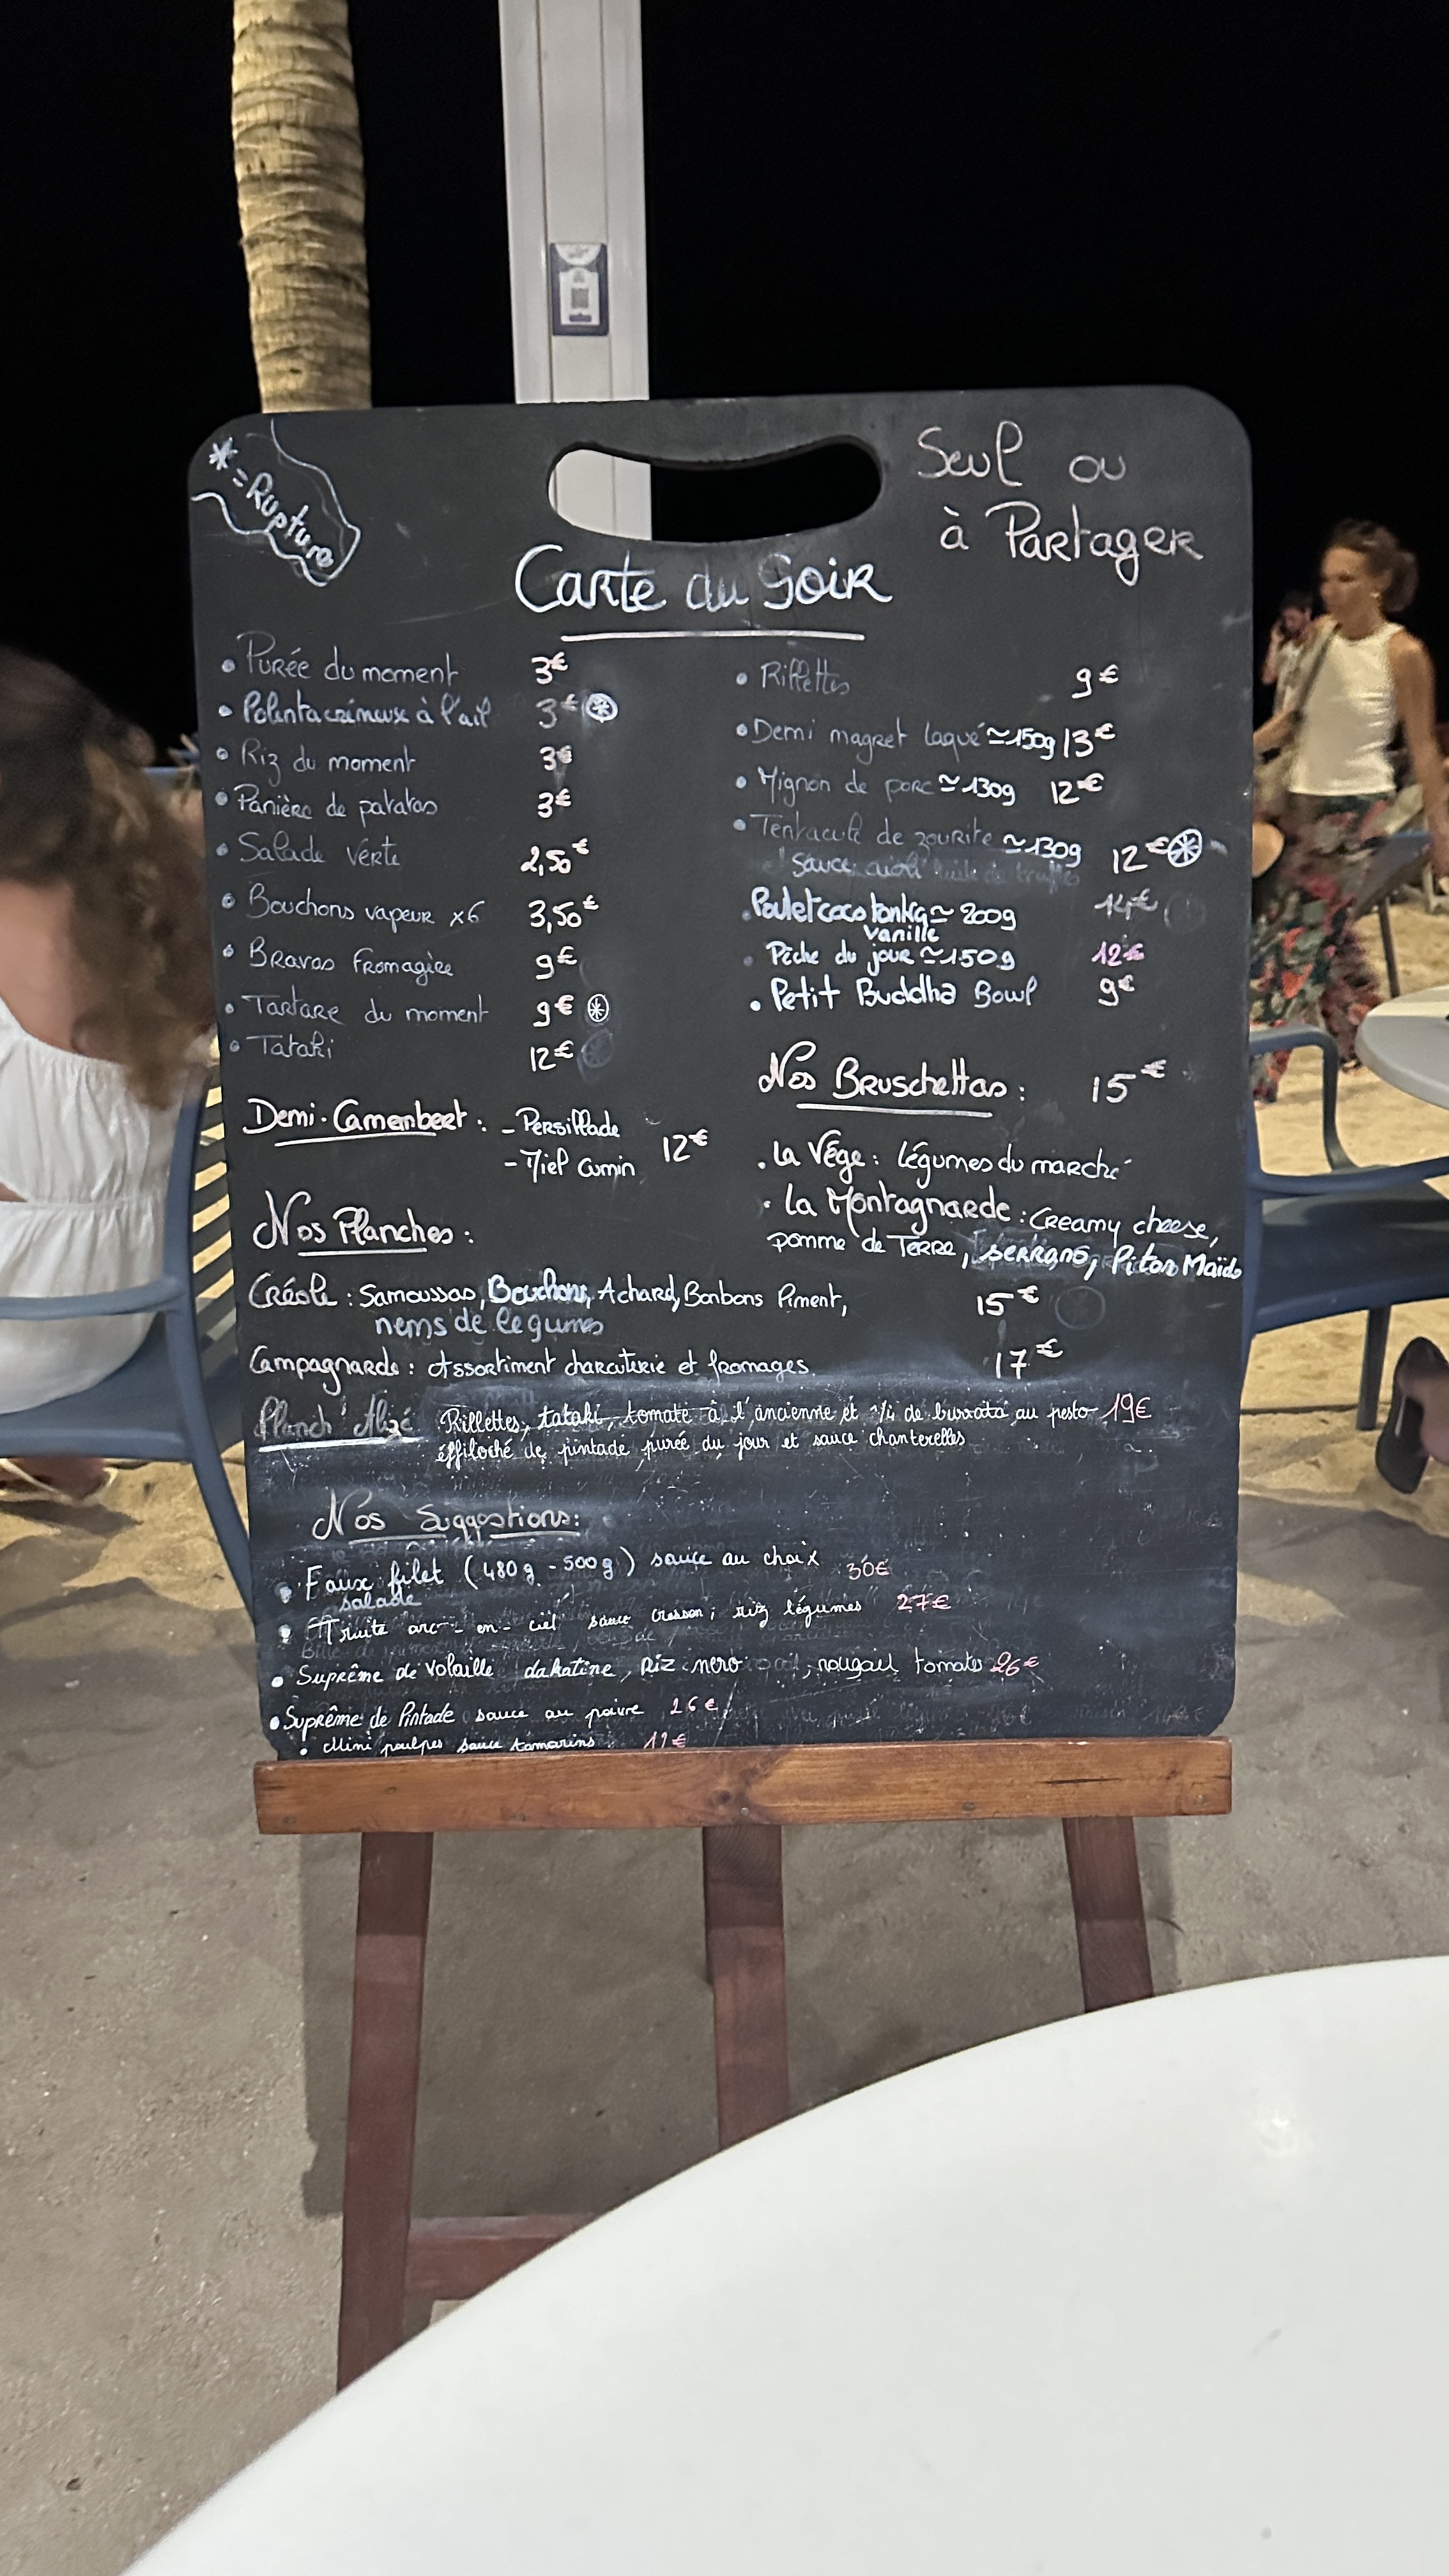 *=Rupture
Seul ou
à Partager
Carte du Soir
• Purée du moment 3€
• Polenta crémeux à l'ail 3€ *
• Riz du moment 3€
• Panière de patatas 3€
• Salade verte 2,50€
• Bouchons vapeur x6 3,50€
• Bravas Fromagère 9€
• Tartare du moment 9€ *
• Tataki 12€
Demi-Camembert : - Persillade
- Miel Cumin 12€
• Rillettes 9€
• Demi magret laqué ≃150g 13€
• Mignon de porc ≃130g 12€
• Tentacule de zourite ≃130g 12€ *
Sauce
. Poulet coco tonka ≃ 200g 14€
vanille
• Pêche du jour ≃150g 12€
• Petit Buddha Bowl 9€
Nos Bruschettas : 15€
. La Vége : légumes du marché
. La Montagnarde : Creamy cheese,
pomme de Terre, serrano, Piton Maïdo
Nos Planches :
Créole : Samoussas, Bouchons, Achard, Bonbons Piment, 15€
nems de légumes
Campagnarde : Assortiment charcuterie et fromages. 17€
Planch' Alizé Rillettes, tataki, tomate à l'ancienne et 1/4 de burrata au pesto 19€
éffiloché de pintade, purée du jour et sauce chanterelles
Nos Suggestions:
• Faux filet (480g - 500g) sauce au choix 30€
salade
• Truite arc - en - ciel sauce cresson, riz légumes 27€
• Suprême de volaille dakatine, Riz nero, rougail tomates 26€
• Suprême de Pintade sauce au poivre 26€
• Mini poulpes sauce tamarins 12€